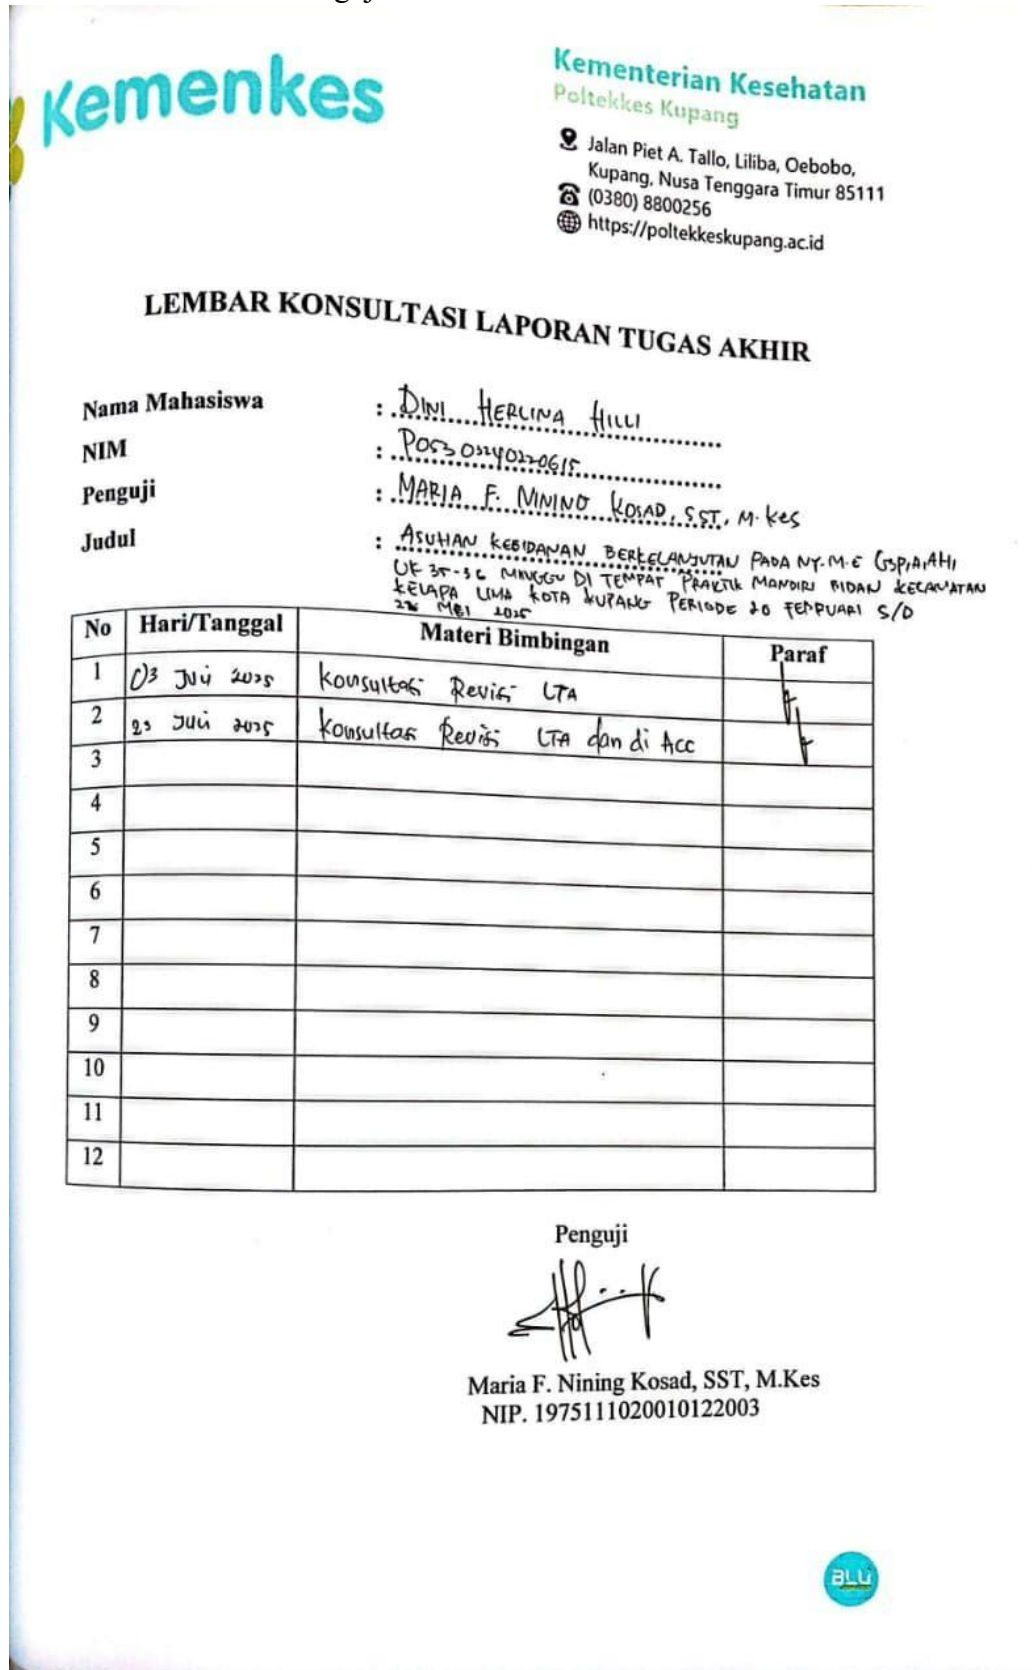 Kemenkes
Kementerian Kesehatan
Poltekkes Kupang
Jalan Piet A. Tallo, Liliba, Oebobo,
Kupang, Nusa Tenggara Timur 85111
(0380) 8800256
https://poltekkeskupang.ac.id
LEMBAR KONSULTASI LAPORAN TUGAS AKHIR
Nama Mahasiswa : DINI HERLINA HILLI
NIM :
Penguji : MARIA F. NINING KOSAD, SST, M.kes
Judul : ASUHAN KEBIDANAN BERKELANJUTAN PADA NY. M.E
UK 35-36 MINGGU DI TEMPAT PRAKTIK MANDIRI BIDAN KECAMATAN
KELAPA LIMA KOTA KUPANG PERIODE 20 FEBRUARI S/D
MEI 2025
No Hari/Tanggal Materi Bimbingan Paraf
1 03 Juli 2025 Konsultasi Revisi LTA
2 23 Juli 2025 Konsultasi Revisi LTA dan di Acc
3
4
5
6
7
8
9
10
11
12
Penguji
Maria F. Nining Kosad, SST, M.Kes
NIP. 1975111020010122003
BLU